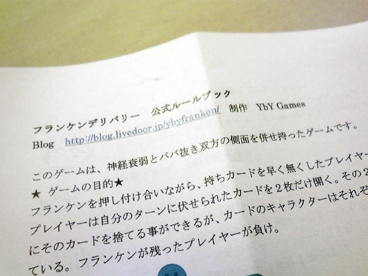 フランケンデリバリー　公式ルールブック
Blog　http://blog.livedoor.jp/ybyfranken/　制作　YbY Games
このゲームは、神経衰弱とババ抜き双方の側面を併せ持ったゲームです。
★ ゲームの目的★
フランケンを押し付け合いながら、持ちカードを早く無くしたプレイヤー
プレイヤーは自分のターンに伏せられたカードを２枚だけ開く。その２
にそのカードを捨てる事ができるが、カードのキャラクターはそれぞ
ている。フランケンが残ったプレイヤーが負け。